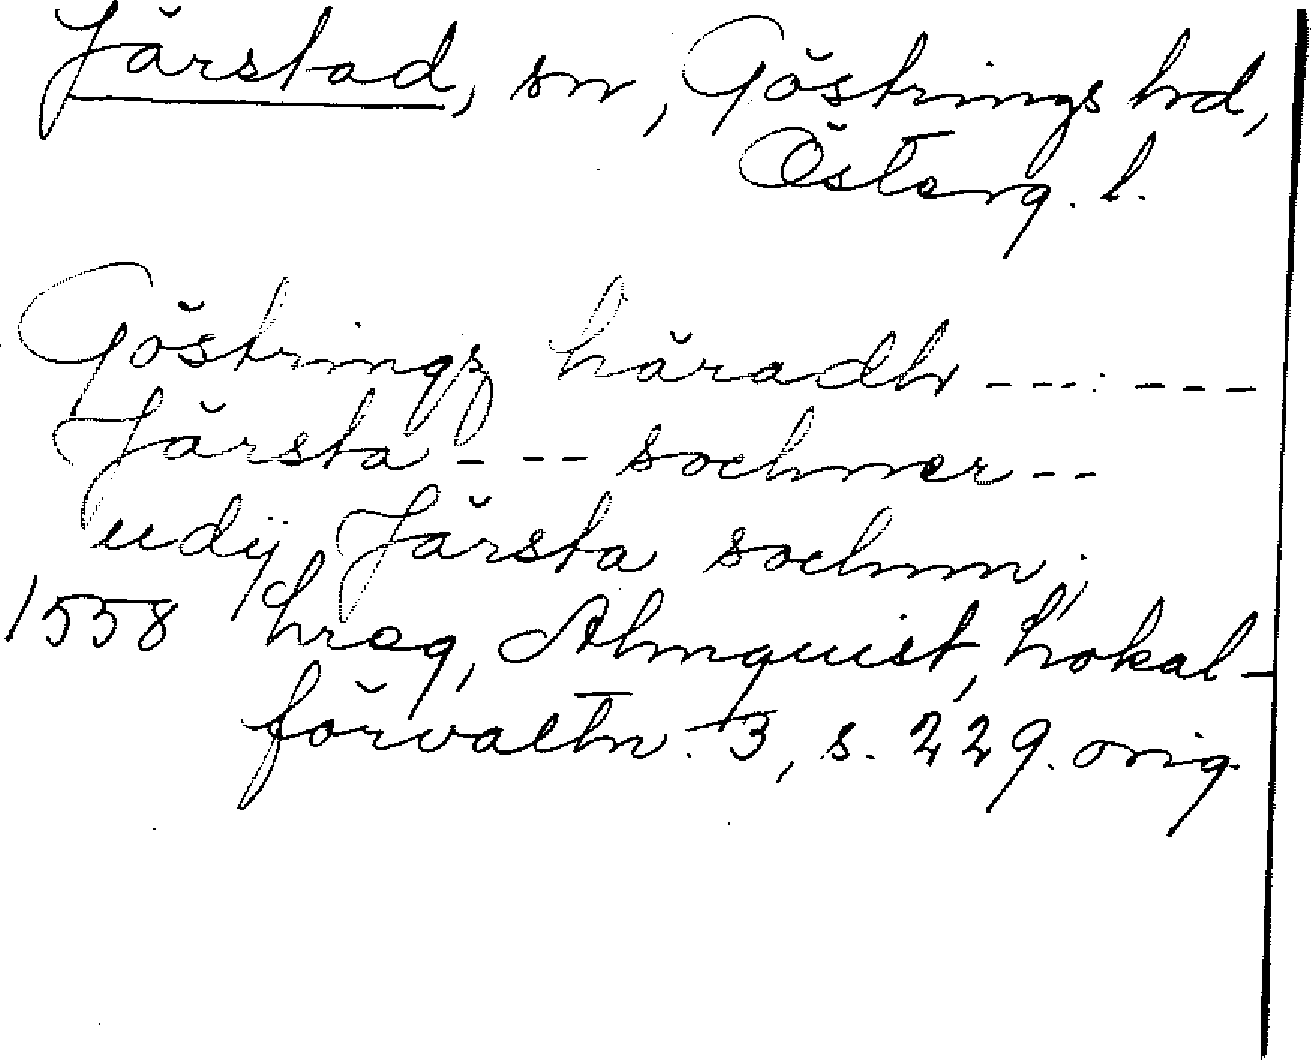 Järstad, sn, Göstrings hd,
Österg. l.
Göstringz häradh - - - - - -
Järsta - - - sochner - -
udij Järsta sochnn;
1558 hreg, Almquist, Lokal-
förvaltn. 3, s. 229. orig.